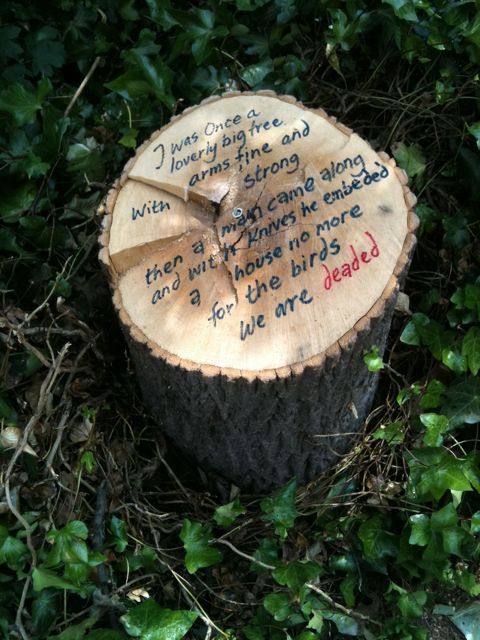 I was Once a
loverly big tree.
With arms fine and
strong
then a man came along
and with knives he embeded
a house no more
for the birds
We are deaded